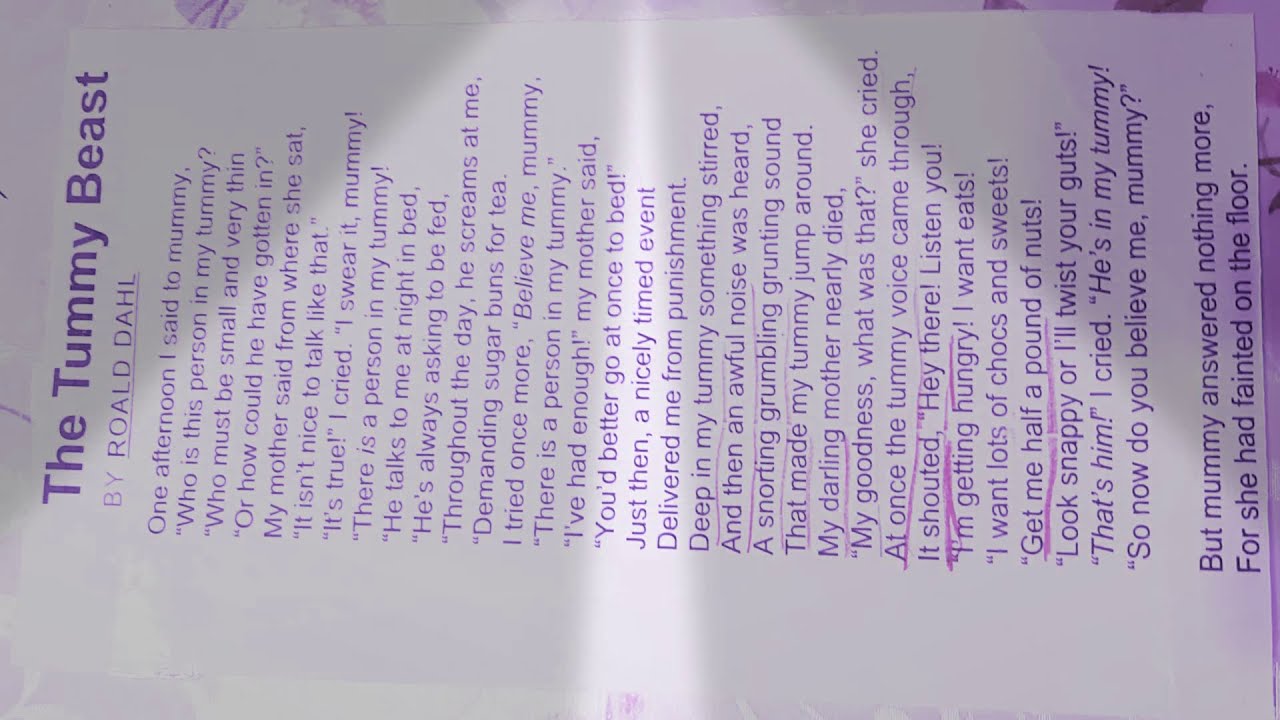 The Tummy Beast
BY ROALD DAHL
One afternoon I said to mummy,
“Who is this person in my tummy?
“Who must be small and very thin
“Or how could he have gotten in?”
My mother said from where she sat,
“It isn’t nice to talk like that.”
“It’s true!” I cried. “I swear it, mummy!
“There is a person in my tummy!
“He talks to me at night in bed,
“He’s always asking to be fed,
“Throughout the day, he screams at me,
“Demanding sugar buns for tea.
I tried once more, “Believe me, mummy,
“There is a person in my tummy.”
“I’ve had enough!” my mother said,
“You’d better go at once to bed!”
Just then, a nicely timed event
Delivered me from punishment.
Deep in my tummy something stirred,
And then an awful noise was heard,
A snorting grumbling grunting sound
That made my tummy jump around.
My darling mother nearly died,
“My goodness, what was that?” she cried.
At once the tummy voice came through,
It shouted, “Hey there! Listen you!
“I’m getting hungry! I want eats!
“I want lots of chocs and sweets!
“Get me half a pound of nuts!
“Look snappy or I’ll twist your guts!”
“That’s him!” I cried. “He’s in my tummy!
“So now do you believe me, mummy?”
But mummy answered nothing more,
For she had fainted on the floor.